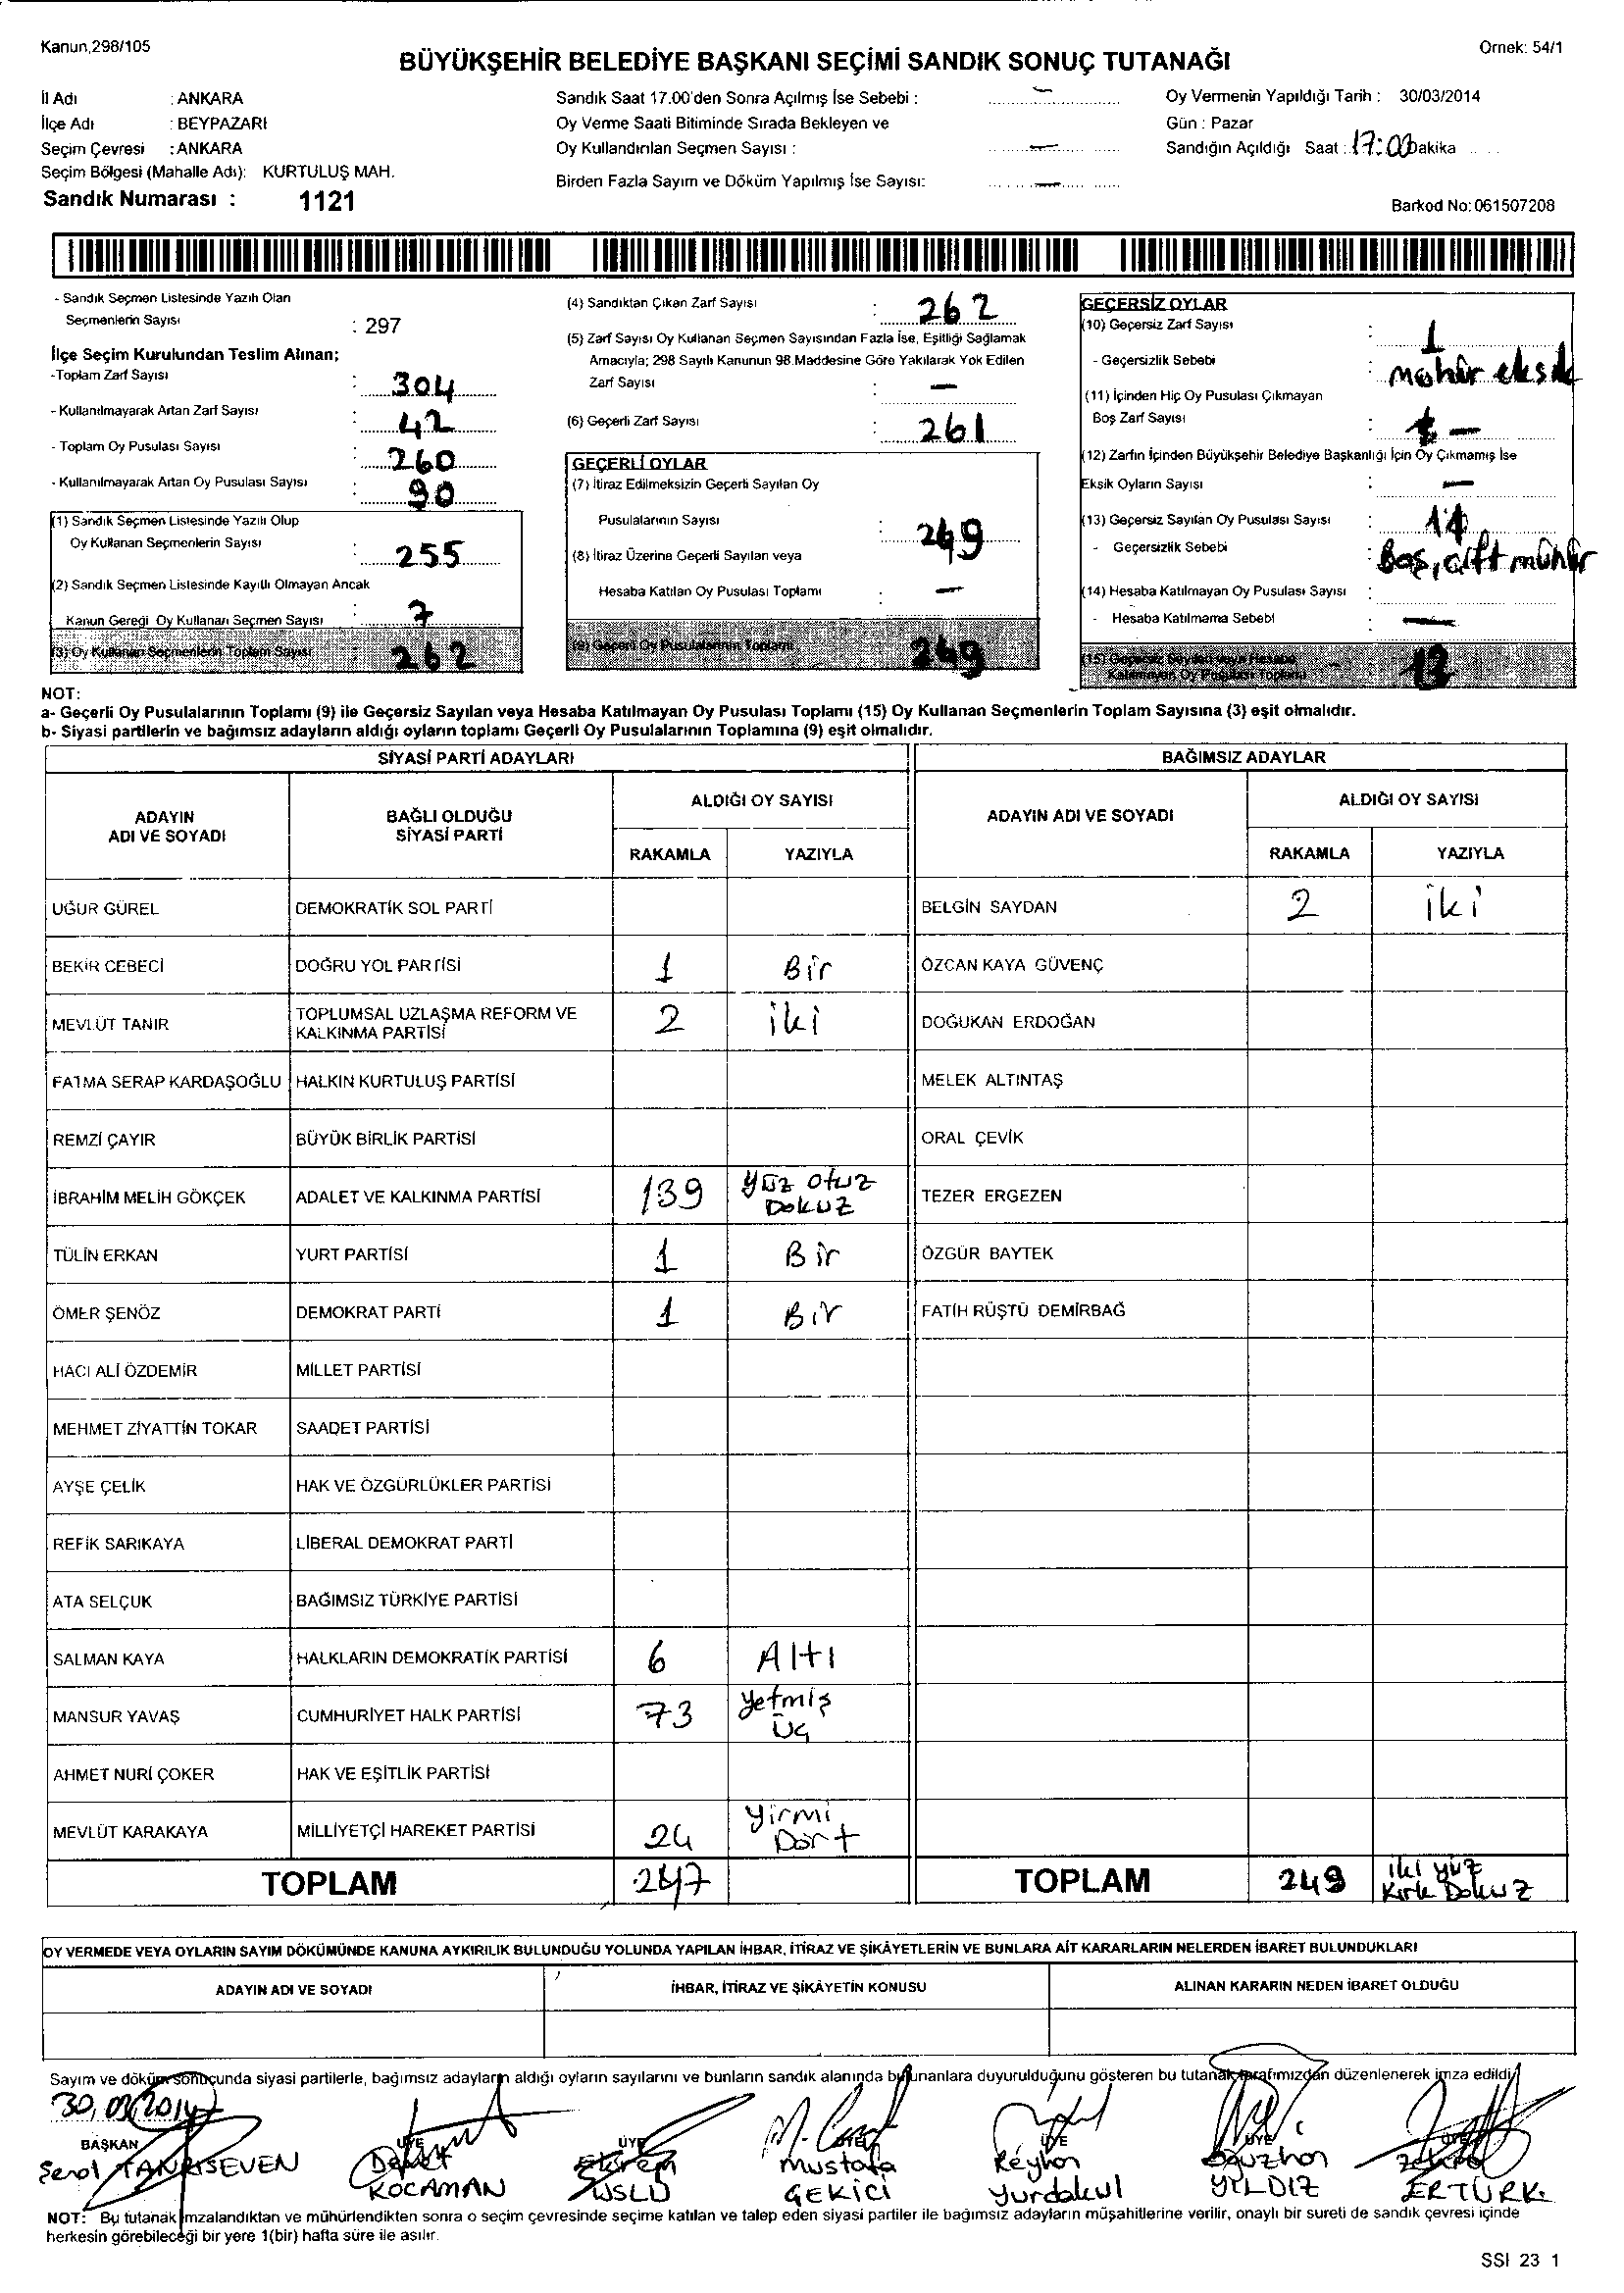 Kanun,298/105
Ornek: 54/1
BÜYÜKŞEHİR BELEDİYE BAŞKANI SEÇİMİ SANDIK SONUÇ TUTANAĞI
İl Adı : ANKARA
İlçe Adı : BEYPAZARI
Seçim Çevresi : ANKARA
Seçim Bölgesi (Mahalle Adı): KURTULUŞ MAH.
Sandık Numarası : 1121
Sandık Saat 17.00'den Sonra Açılmış İse Sebebi : –
Oy Verme Saati Bitiminde Sırada Bekleyen ve
Oy Kullandırılan Seçmen Sayısı : –
Birden Fazla Sayım ve Döküm Yapılmış İse Sayısı: –
Oy Vermenin Yapıldığı Tarih : 30/03/2014
Gün : Pazar
Sandığın Açıldığı Saat : 17:00 Dakika
Barkod No: 061507208
- Sandık Seçmen Listesinde Yazılı Olan
Seçmenlerin Sayısı : 297
İlçe Seçim Kurulundan Teslim Alınan;
-Toplam Zarf Sayısı : 304
- Kullanılmayarak Artan Zarf Sayısı : 42
- Toplam Oy Pusulası Sayısı : 260
- Kullanılmayarak Artan Oy Pusulası Sayısı : 90
(1) Sandık Seçmen Listesinde Yazılı Olup
Oy Kullanan Seçmenlerin Sayısı : 255
(2) Sandık Seçmen Listesinde Kayıtlı Olmayan Ancak
Kanun Gereği Oy Kullanan Seçmen Sayısı : 7
(3) Oy Kullanan Seçmenlerin Toplam Sayısı 262
(4) Sandıktan Çıkan Zarf Sayısı : 262
(5) Zarf Sayısı Oy Kullanan Seçmen Sayısından Fazla İse, Eşitliği Sağlamak
Amacıyla; 298 Sayılı Kanunun 98.Maddesine Göre Yakılarak Yok Edilen
Zarf Sayısı : –
(6) Geçerli Zarf Sayısı : 261
GEÇERLİ OYLAR
(7) İtiraz Edilmeksizin Geçerli Sayılan Oy
Pusulalarının Sayısı : 249
(8) İtiraz Üzerine Geçerli Sayılan veya
Hesaba Katılan Oy Pusulası Toplamı : –
(9) Geçerli Oy Pusulalarının Toplamı 249
GEÇERSİZ OYLAR
(10) Geçersiz Zarf Sayısı : 1
- Geçersizlik Sebebi : mühür eksik
(11) İçinden Hiç Oy Pusulası Çıkmayan
Boş Zarf Sayısı : –
(12) Zarfın İçinden Büyükşehir Belediye Başkanlığı İçin Oy Çıkmamış İse
Eksik Oyların Sayısı : –
(13) Geçersiz Sayılan Oy Pusulası Sayısı :
- Geçersizlik Sebebi : Boş, çift mühür
(14) Hesaba Katılmayan Oy Pusulası Sayısı :
- Hesaba Katılmama Sebebi : –
(15) Geçersiz Sayılan veya Hesaba
Katılmayan Oy Pusulası Toplamı
NOT:
a- Geçerli Oy Pusulalarının Toplamı (9) ile Geçersiz Sayılan veya Hesaba Katılmayan Oy Pusulası Toplamı (15) Oy Kullanan Seçmenlerin Toplam Sayısına (3) eşit olmalıdır.
b- Siyasi partilerin ve bağımsız adayların aldığı oyların toplamı Geçerli Oy Pusulalarının Toplamına (9) eşit olmalıdır.
SİYASİ PARTİ ADAYLARI
BAĞIMSIZ ADAYLAR
ADAYIN ADI VE SOYADI
BAĞLI OLDUĞU SİYASİ PARTİ
ALDIĞI OY SAYISI
RAKAMLA YAZIYLA
ADAYIN ADI VE SOYADI
ALDIĞI OY SAYISI
RAKAMLA YAZIYLA
UĞUR GÜREL DEMOKRATİK SOL PARTİ BELGİN SAYDAN 2 iki
BEKİR CEBECİ DOĞRU YOL PARTİSİ 1 Bir ÖZCAN KAYA GÜVENÇ
MEVLÜT TANIR TOPLUMSAL UZLAŞMA REFORM VE KALKINMA PARTİSİ 2 iki DOĞUKAN ERDOĞAN
FATMA SERAP KARDAŞOĞLU HALKIN KURTULUŞ PARTİSİ MELEK ALTINTAŞ
REMZİ ÇAYIR BÜYÜK BİRLİK PARTİSİ ORAL ÇEVİK
İBRAHİM MELİH GÖKÇEK ADALET VE KALKINMA PARTİSİ 139 Yüz otuz Dokuz TEZER ERGEZEN
TÜLİN ERKAN YURT PARTİSİ 1 Bir ÖZGÜR BAYTEK
ÖMER ŞENÖZ DEMOKRAT PARTİ 1 Bir FATİH RÜŞTÜ DEMİRBAĞ
HACI ALİ ÖZDEMİR MİLLET PARTİSİ
MEHMET ZİYATTİN TOKAR SAADET PARTİSİ
AYŞE ÇELİK HAK VE ÖZGÜRLÜKLER PARTİSİ
REFİK SARIKAYA LİBERAL DEMOKRAT PARTİ
ATA SELÇUK BAĞIMSIZ TÜRKİYE PARTİSİ
SALMAN KAYA HALKLARIN DEMOKRATİK PARTİSİ 6 Altı
MANSUR YAVAŞ CUMHURİYET HALK PARTİSİ 73 Yetmiş Üç
AHMET NURİ ÇOKER HAK VE EŞİTLİK PARTİSİ
MEVLÜT KARAKAYA MİLLİYETÇİ HAREKET PARTİSİ 24 Yirmi Dört
TOPLAM 247 TOPLAM 249 iki yüz Kırk Dokuz
OY VERMEDE VEYA OYLARIN SAYIM DÖKÜMÜNDE KANUNA AYKIRILIK BULUNDUĞU YOLUNDA YAPILAN İHBAR, İTİRAZ VE ŞİKÂYETLERİN VE BUNLARA AİT KARARLARIN NELERDEN İBARET BULUNDUKLARI
ADAYIN ADI VE SOYADI İHBAR, İTİRAZ VE ŞİKÂYETİN KONUSU ALINAN KARARIN NEDEN İBARET OLDUĞU
Sayım ve döküm sonucunda siyasi partilerle, bağımsız adayların aldığı oyların sayılarını ve bunların sandık alanında bulunanlara duyurulduğunu gösteren bu tutanak tarafımızdan düzenlenerek imza edildi.
30,03,2014
BAŞKAN ÜYE ÜYE ÜYE ÜYE ÜYE ÜYE
Şenol TANRISEVEN
Demet KOCAMAN
Ekrem USLU
Mustafa GEKİCİ
Reyhan Yurdakul
Oğuzhan YILDIZ
ERTÜRK
NOT: Bu tutanak imzalandıktan ve mühürlendikten sonra o seçim çevresinde seçime katılan ve talep eden siyasi partiler ile bağımsız adayların müşahitlerine verilir, onaylı bir sureti de sandık çevresi içinde
herkesin görebileceği bir yere 1(bir) hafta süre ile asılır.
SSI 23 1